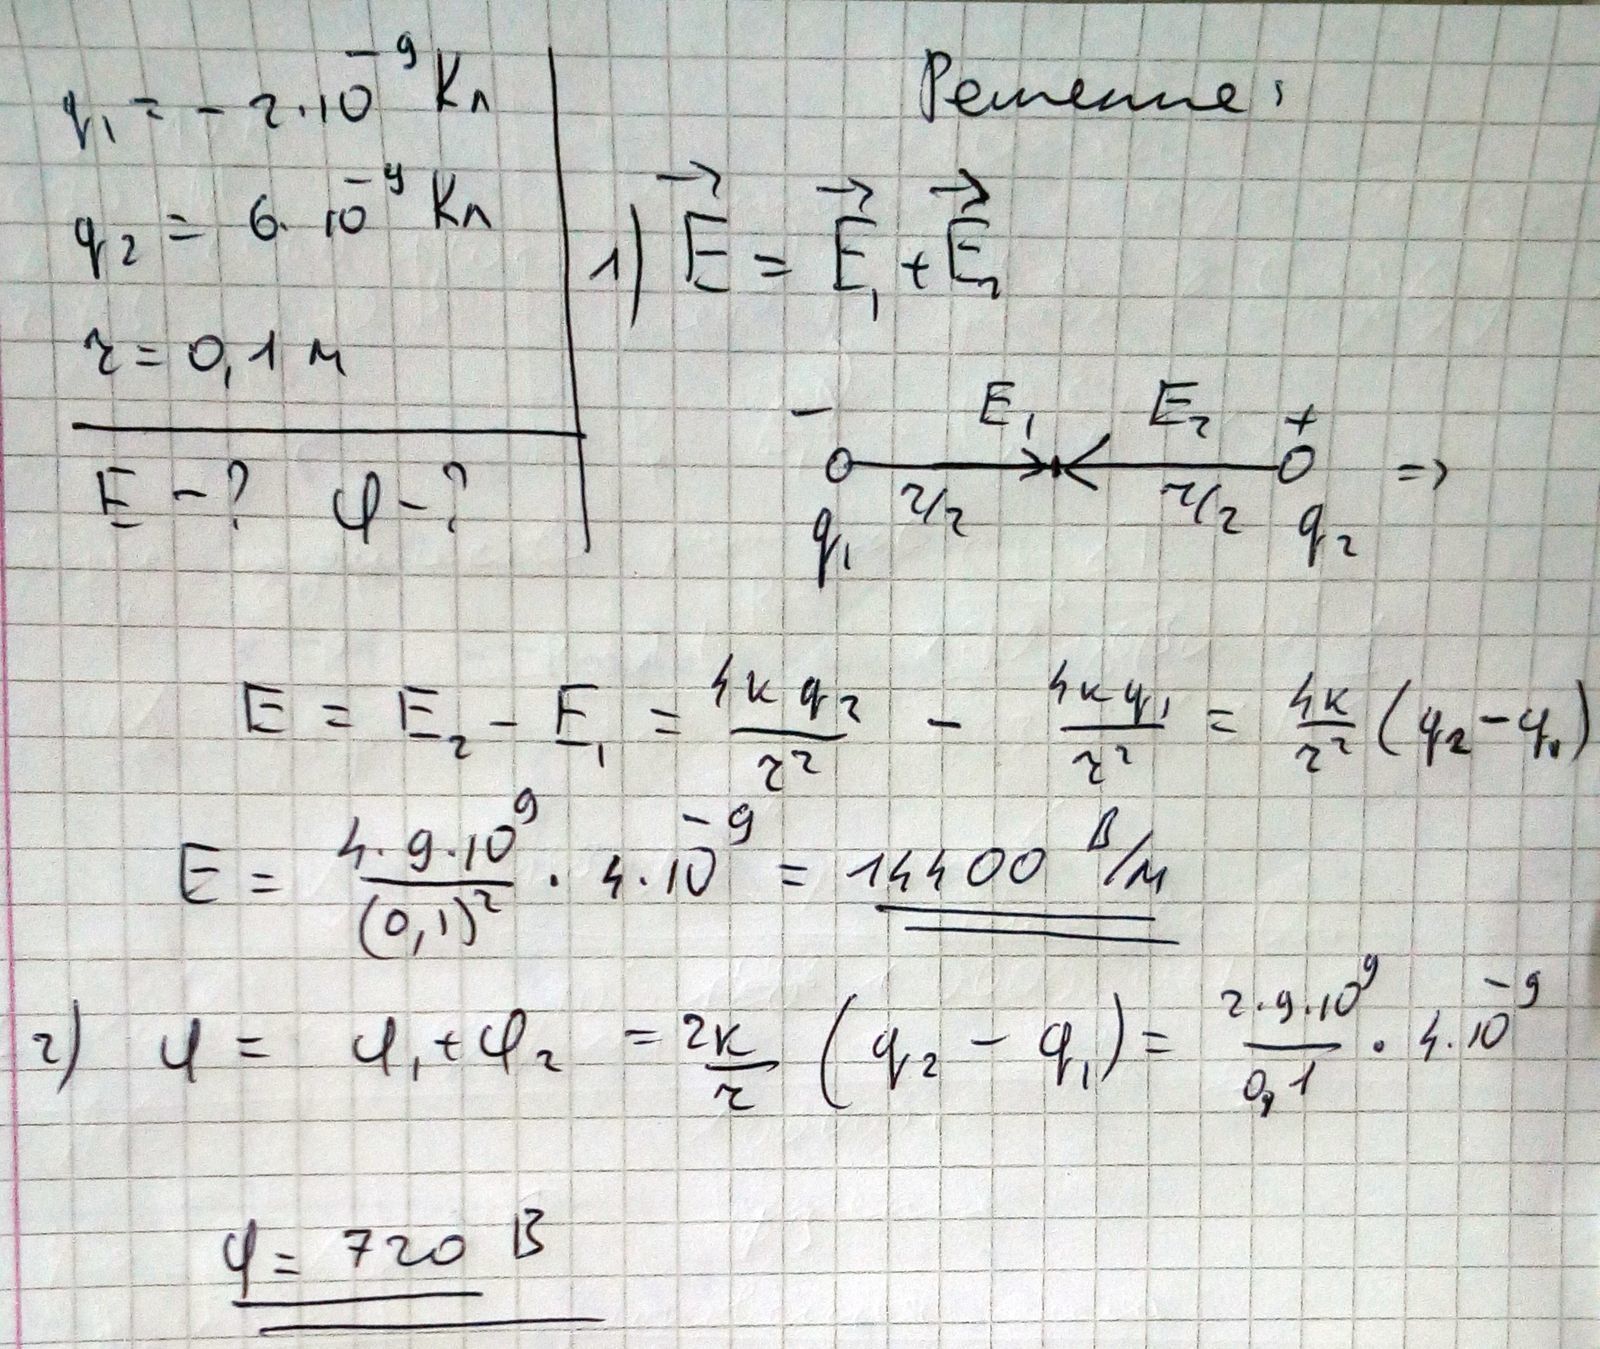 q₁ = - 2·10⁻⁹ Кл
q₂ = 6·10⁻⁹ Кл
r = 0,1 м
E - ? φ - ?
Решение:
1) E⃗ = E⃗₁ + E⃗₂
- E₁ E₂ +
r/2 r/2 =>
q₁ q₂
E = E₂ - E₁ = 4кq₂/r² - 4кq₁/r² = 4к/r² (q₂ - q₁)
E = 4·9·10⁹/(0,1)² · 4·10⁻⁹ = 14400 В/м
2) φ = φ₁ + φ₂ = 2к/r (q₂ - q₁) = 2·9·10⁹/0,1 · 4·10⁻⁹
φ = 720 В